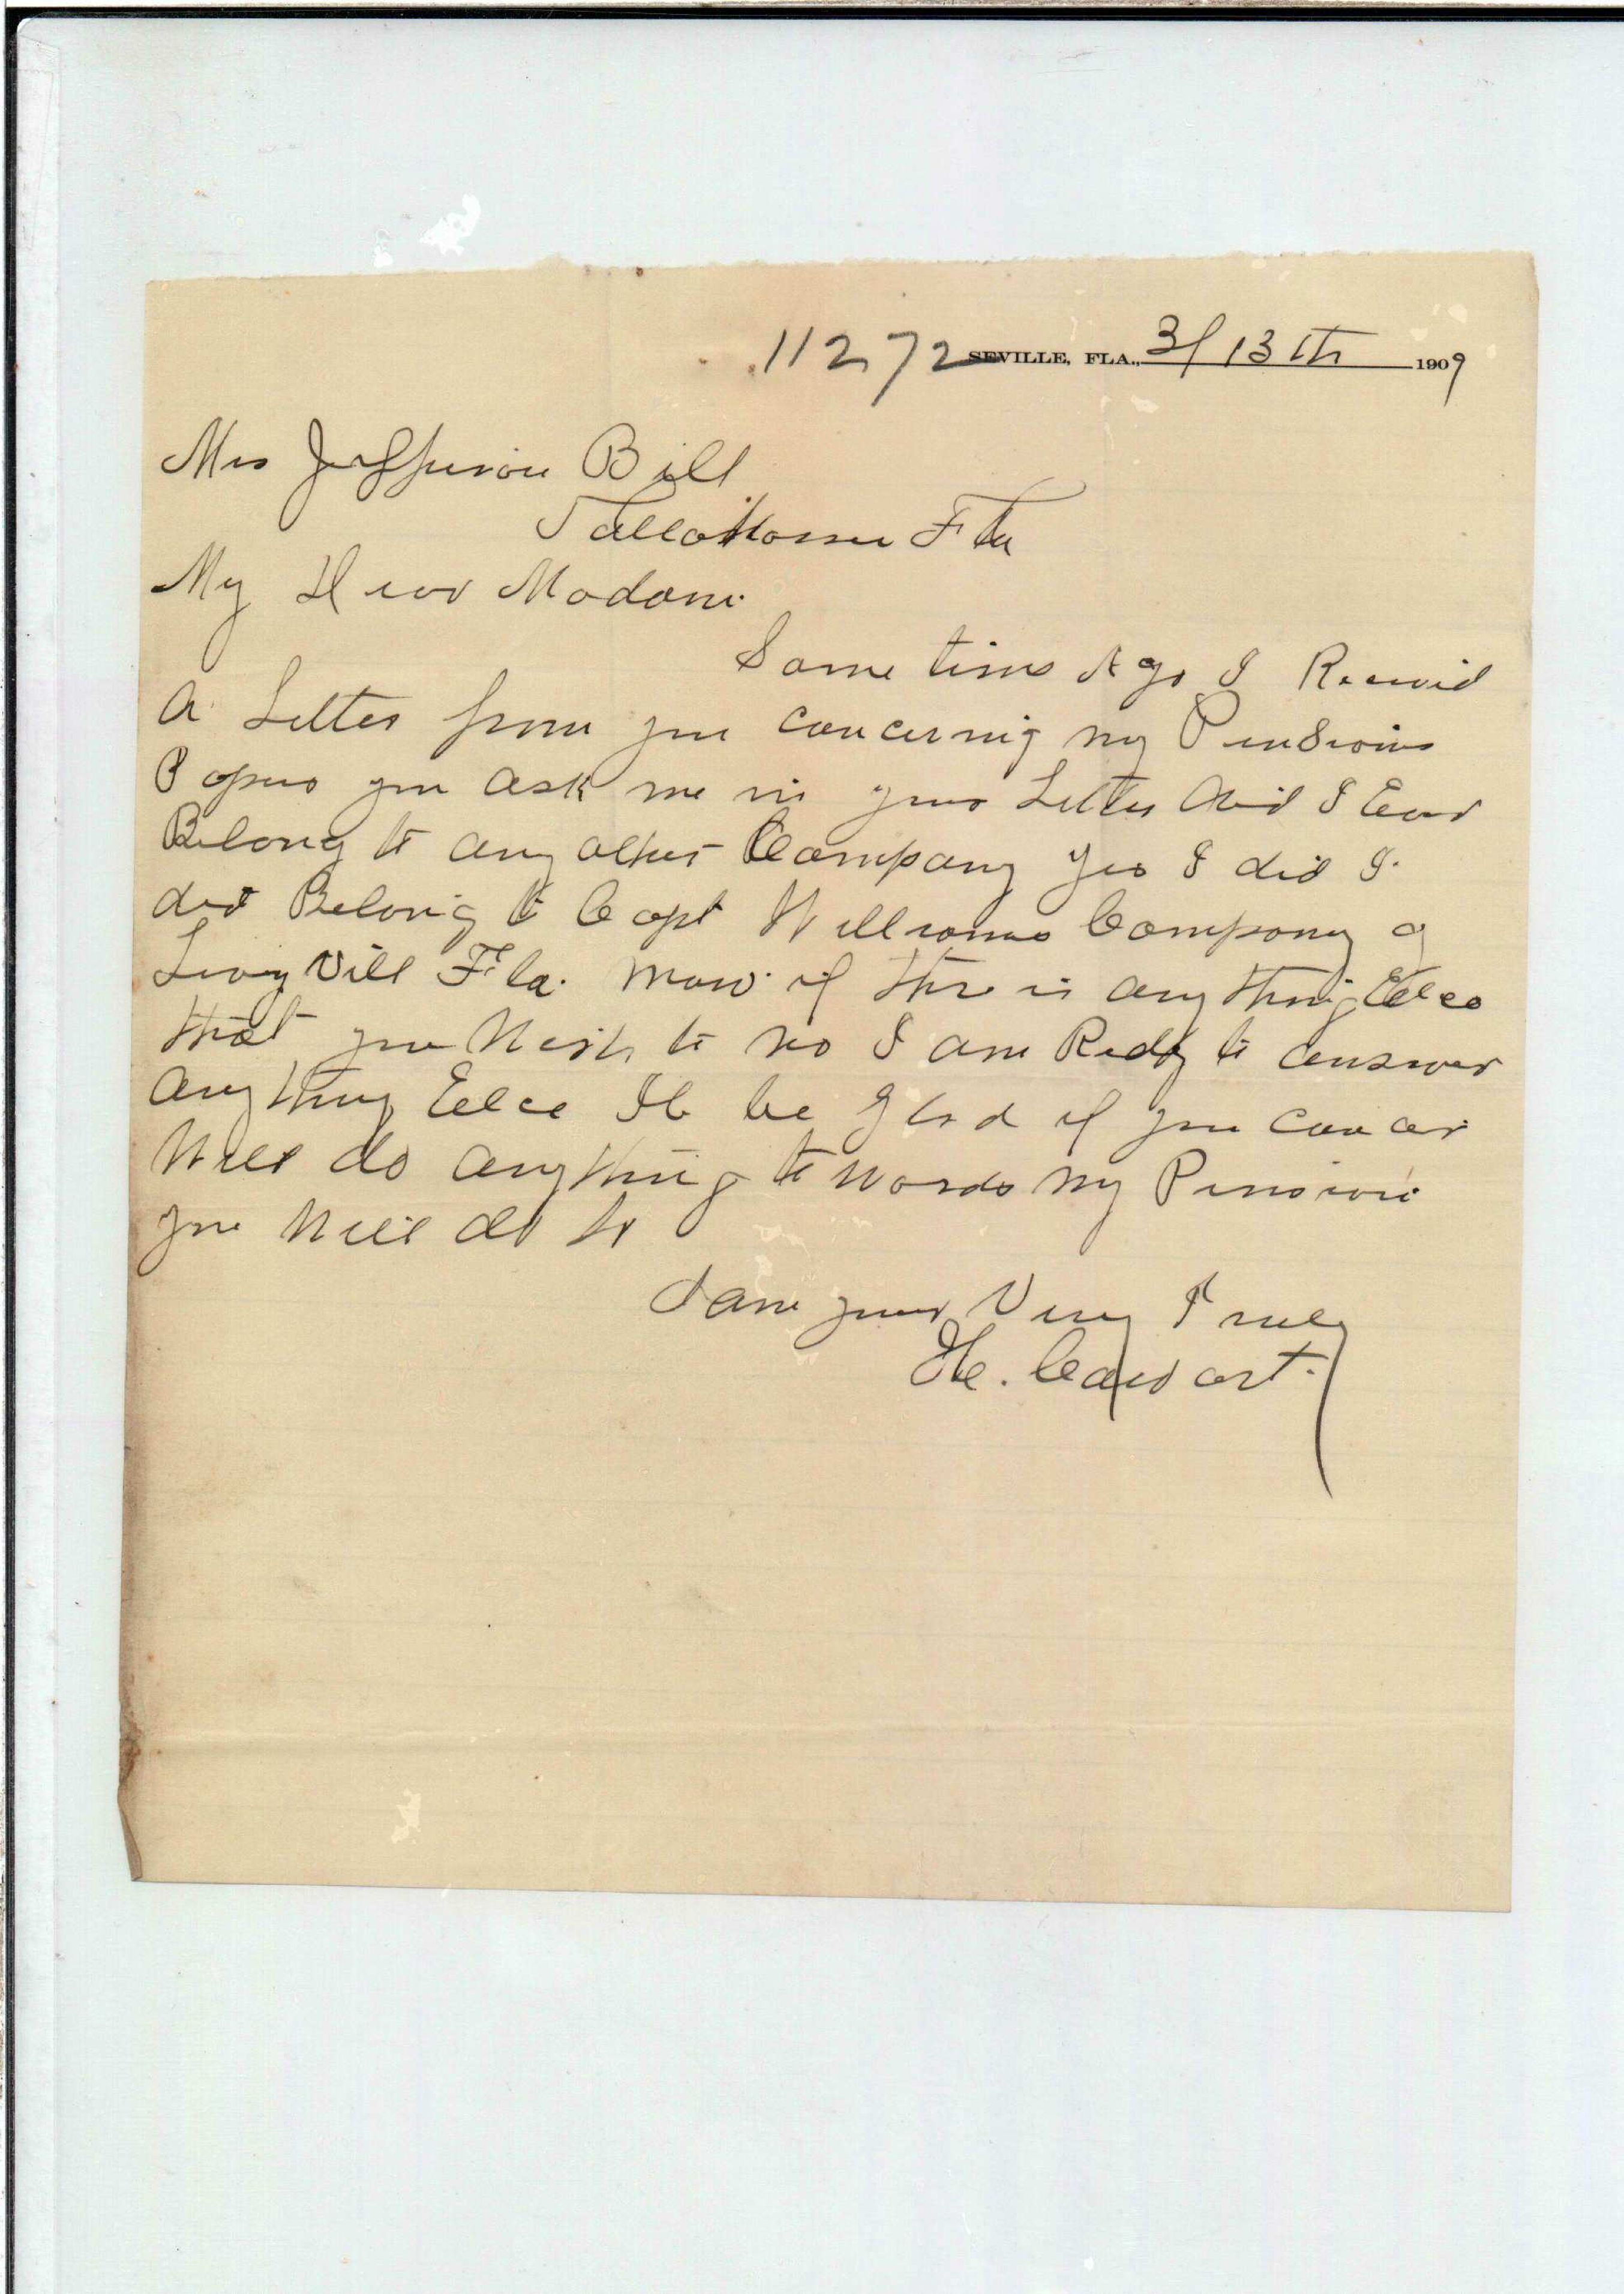 11272 SEVILLE, FLA., 3/13th 1909
Mrs Jefferson Bell
Tallahassee Fla
My Dear Madam.
Some time Ago I Received
A Letter from you concerning my Pensions
Papers you ask me in your Letter did I Ever
Belong to any other Company yes I did I
did Belong to Capt Williams Company of
Levy Vill Fla. now if there is any thing Eelce
that you Wish to no I am Redy to answer
any thing Eelce Il be glad if you can or
Will do anything to Words my Pension
you Will do
I am yours Very Truly
H. Cawart.